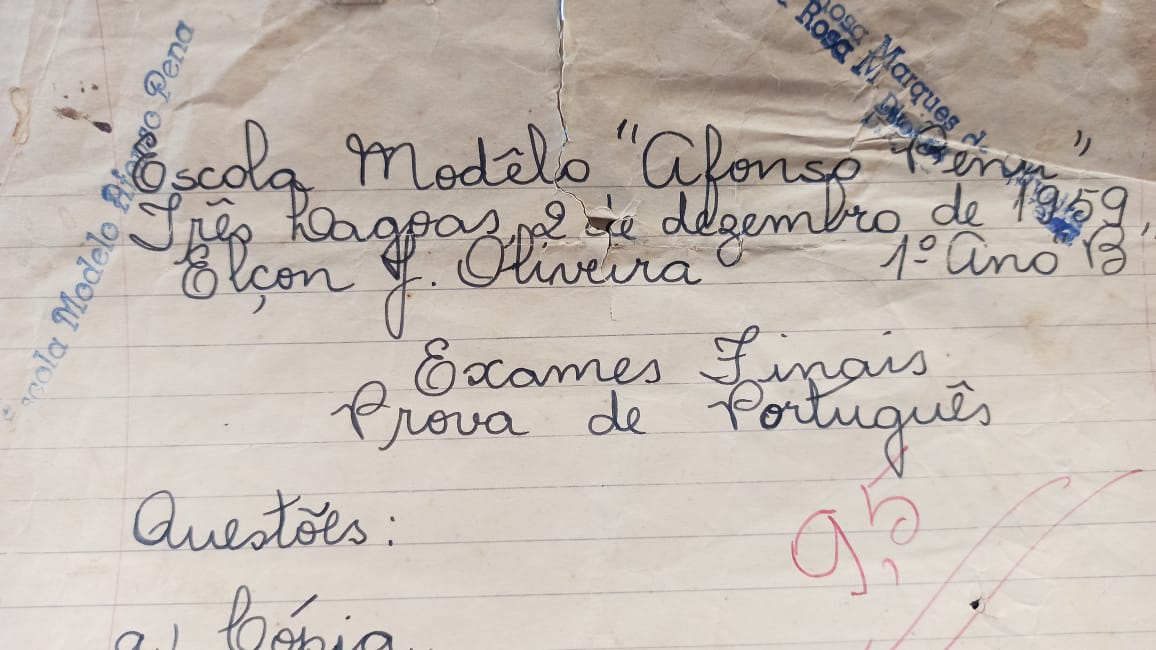 Escola Modelo Afonso Pena
Rosa Marques d
Rosa M
Escola Modêlo "Afonso Pena"
Três Lagoas, 2 de dezembro de 1959
Elçon J. Oliveira 1º Ano B
Exames Finais
Prova de Português
9,5
Questões:
a) Cópia